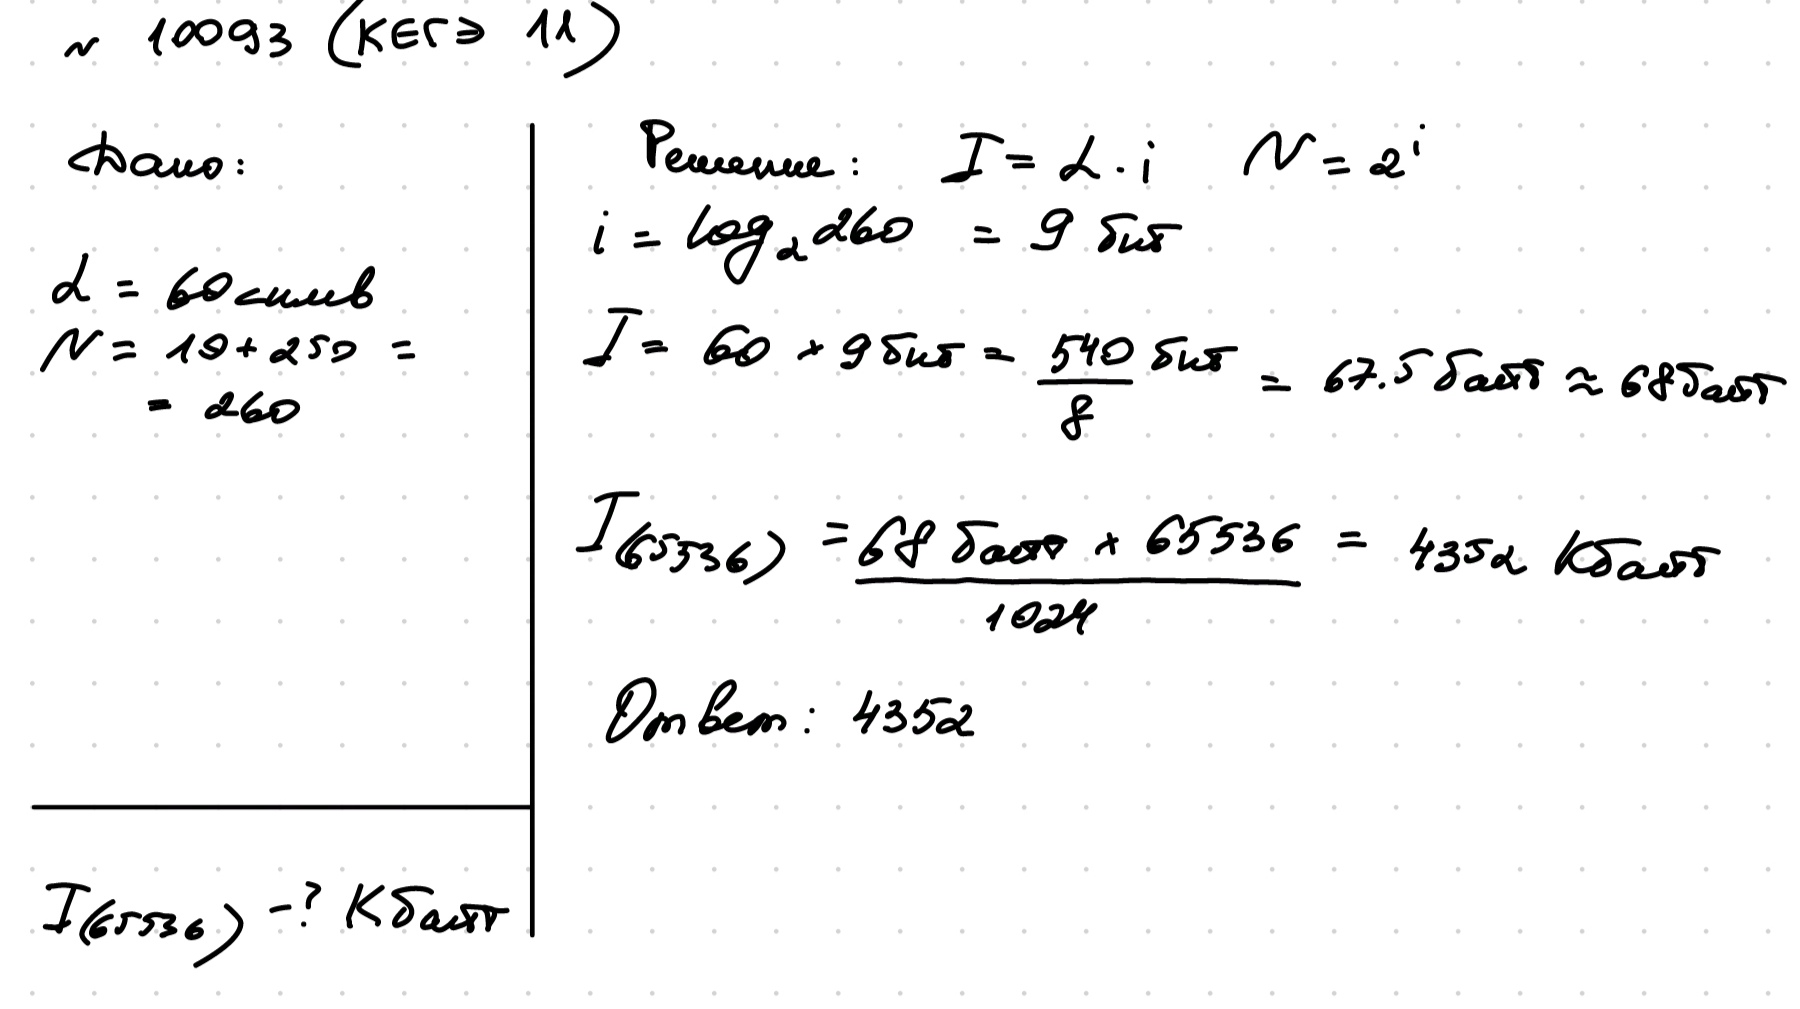 ~ 10093 (КЕГЭ 11)
Дано:
L = 60 симв
N = 10 + 250 =
= 260
I(65536) -? Кбайт
Решение: I = L · i N = 2^i
i = log₂ 260 = 9 бит
I = 60 × 9 бит = 540/8 бит = 67.5 байт ≈ 68 байт
I(65536) = 68 байт × 65536 / 1024 = 4352 Кбайт
Ответ: 4352